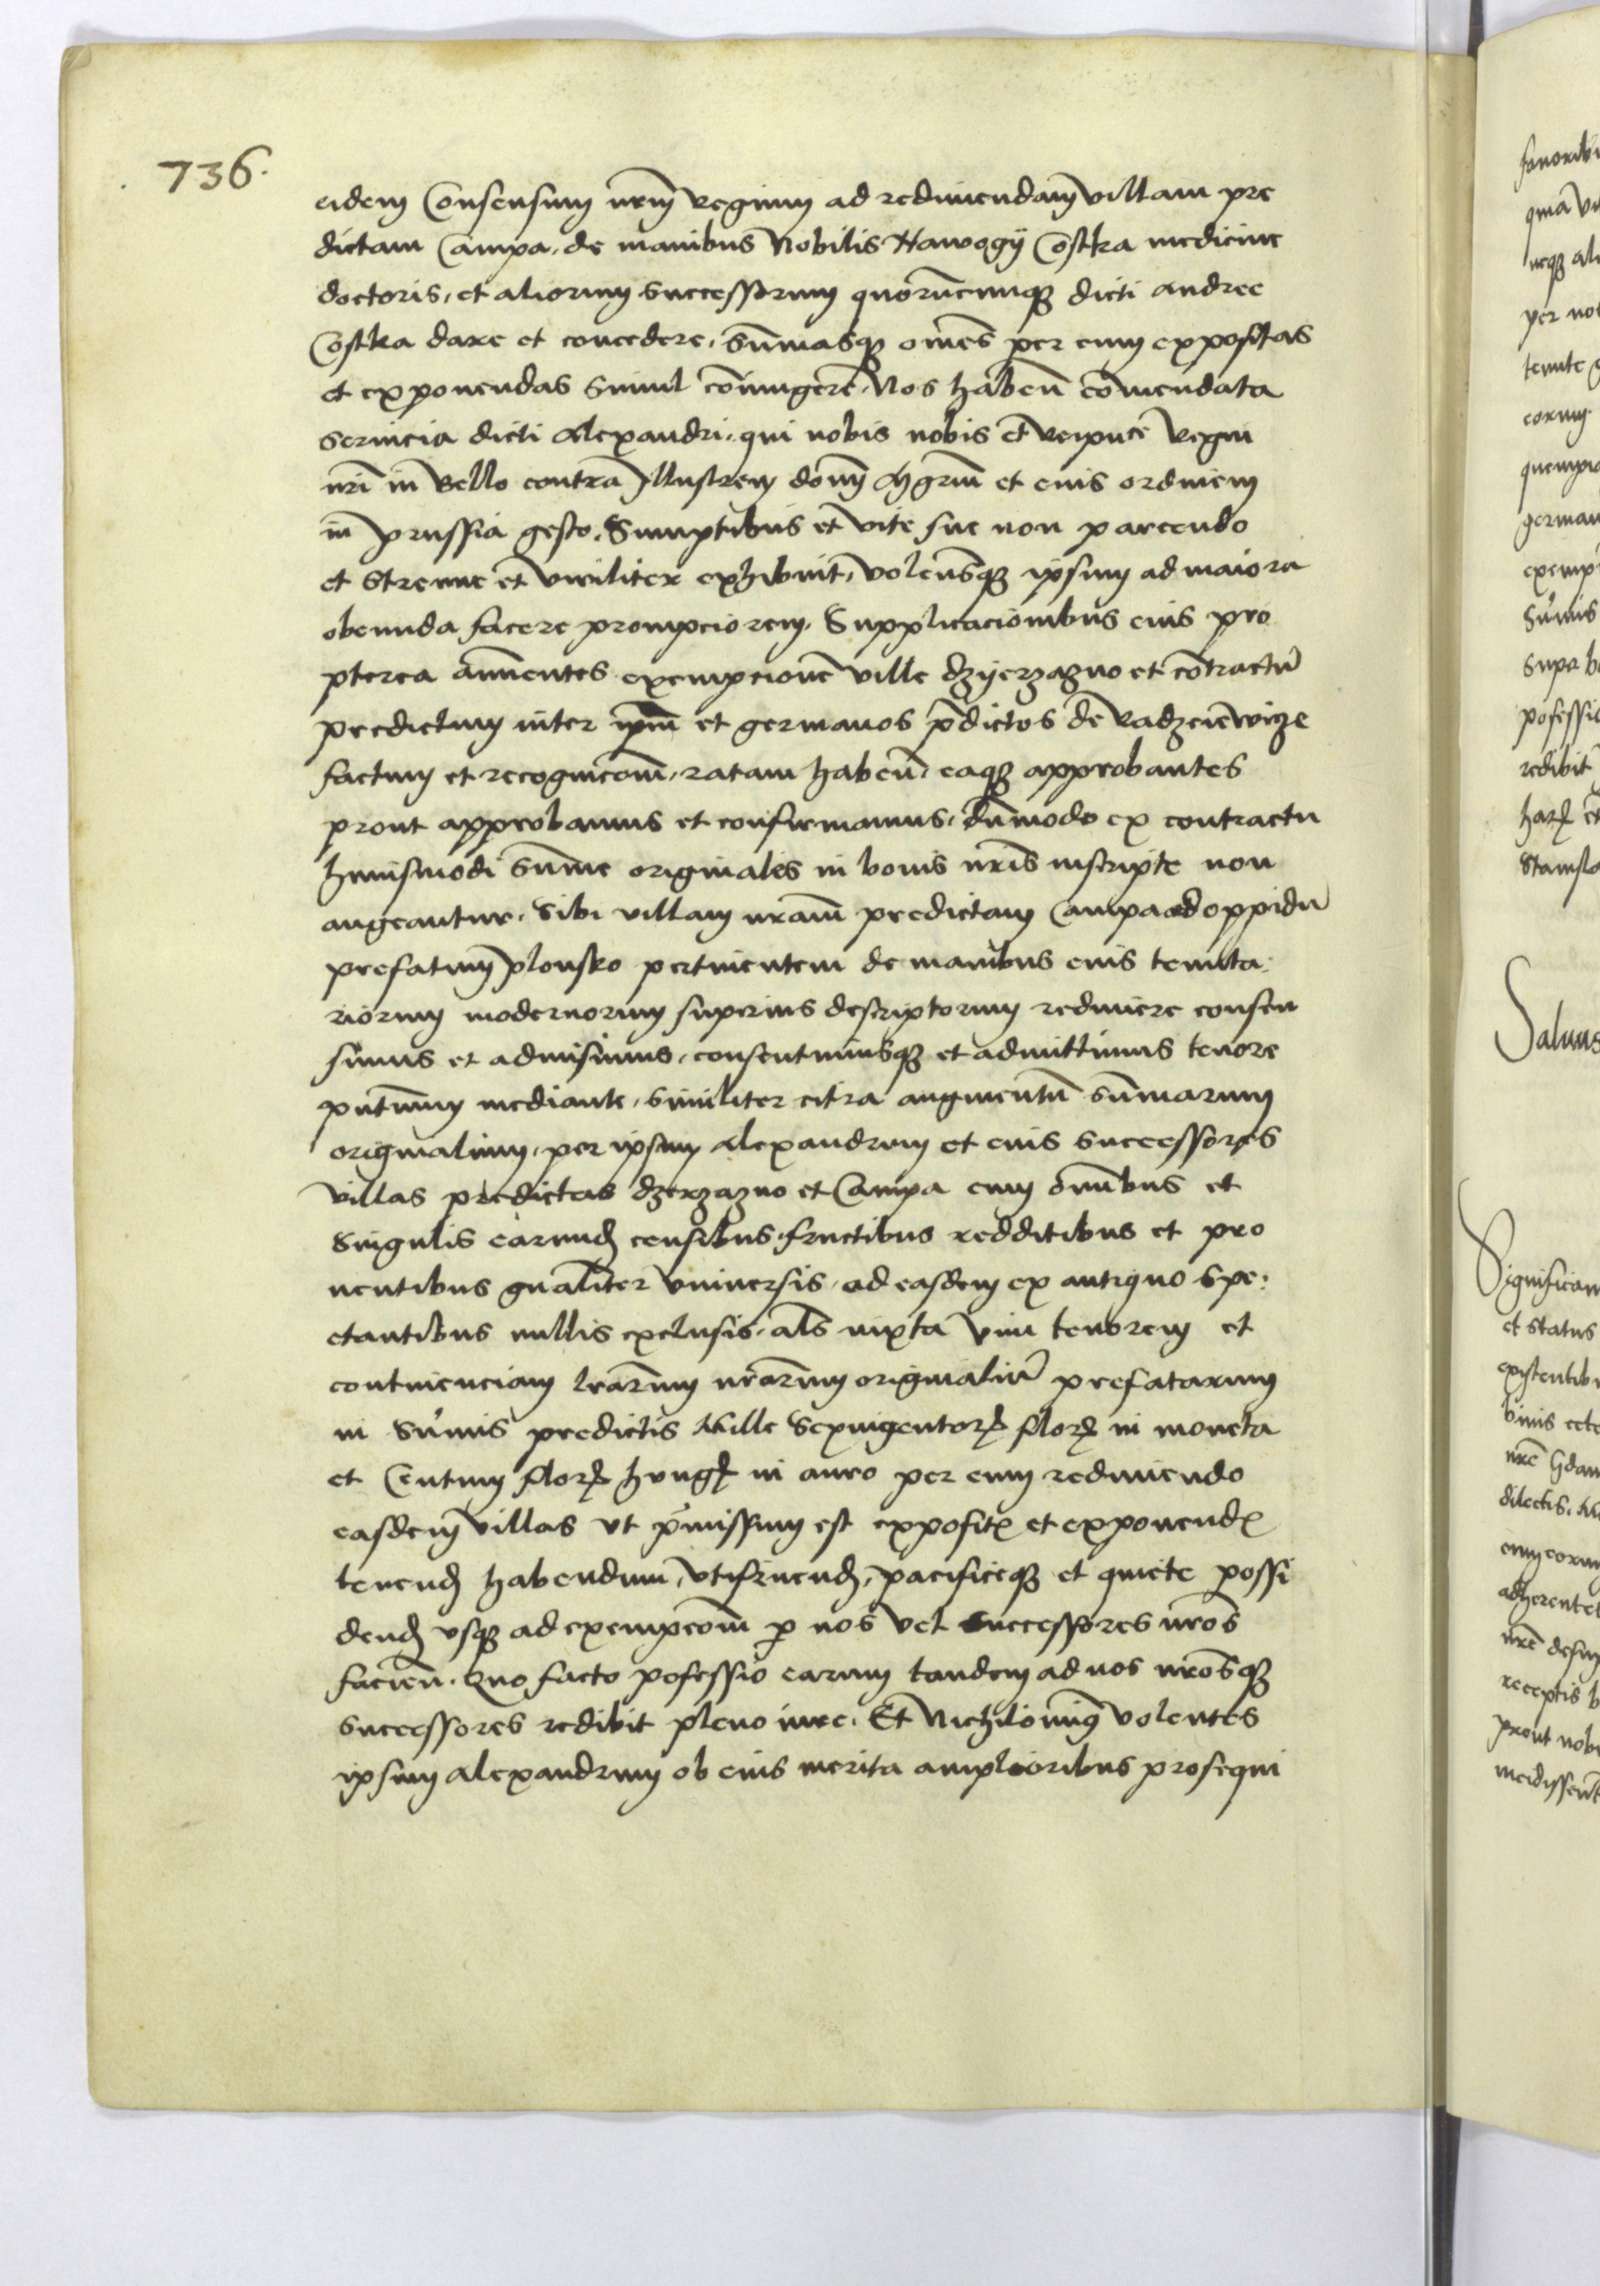 736.
eidem Consensum nrm̄ Regium ad redimendam villam pre
dictam Campa, de manibus Nobilis Hawogij Costka medicine
doctoris, et aliorum successorum quorūcumqꝫ dicti andree
Costka dare et concedere, Sūmasqꝫ omēs per eum expositas
et exponendas simul coniungere, Nos habeñ cōmendata
seruicia dicti Alexandri, qui nobis nobis et Reipuce Regni
nri in Bello contra Illustrem dom̄ Mgrm̄ et eius ordinem
in prussia gesto, Sumptibus et vite sue non parcendo
et Strenue et viriliter exhibuit, volensqꝫ ipsum ad maiora
obeunda facere prompciorem, Supplicacionibus eius pro
pterea annuentes exempcionē ville dzijerzązno et cōtractū
predictum inter ipm̄ et germanos p̄dictos de Radzeiewicze
factum et recognicom̄, ratam habeñ, eaqꝫ approbantes
prout approbamus et confirmamus, dūmodo ex contractu
huiusmodi Sūme originales in bonis nr̄is inscripte non
augeantur, Sibi villam nram̄ predictam Campa ad oppidū
prefatum plonsko pertinentem de manibus eius tenuta:
riorum modernorum superius descriptorum redimere consen
simus et admisimus, consentimusqꝫ et admittimus tenore
pn̄tium mediante, similiter citra augmentū Sūmarum
originalium, per ipsum Alexandrum et eius successores
villas predictas dzerzazno et Campa cum omībus et
Singulis earundꝫ censibus fructibus redditibus et pro
uentibus gn̄aliter vniuersis, ad easdem ex antiquo Spe:
ctantibus nullis exclusis, als iuxta vim tenorem et
continenciam lrarum nrarum originaliū prefatarum
in Sūmis predictis Mille Sexingentorꝝ florꝝ in moneta
et Centum florꝝ hungꝝ in auro per eum redimendo
easdem villas vt p̄missum est exposit̄ et exponend̄
tenendꝫ habendum, vtifruendꝫ, pacificeqꝫ et quiete possi
dendꝫ vsqꝫ ad exempcom̄ ꝑ nos vel successores nr̄os
facieñ. Quo facto possessio earum tandem ad nos nr̄osqꝫ
successores redibit pleno iure. Et Nichilominꝰ volentes
ipsum alexandrum ob eius merita amplioribus prosequi